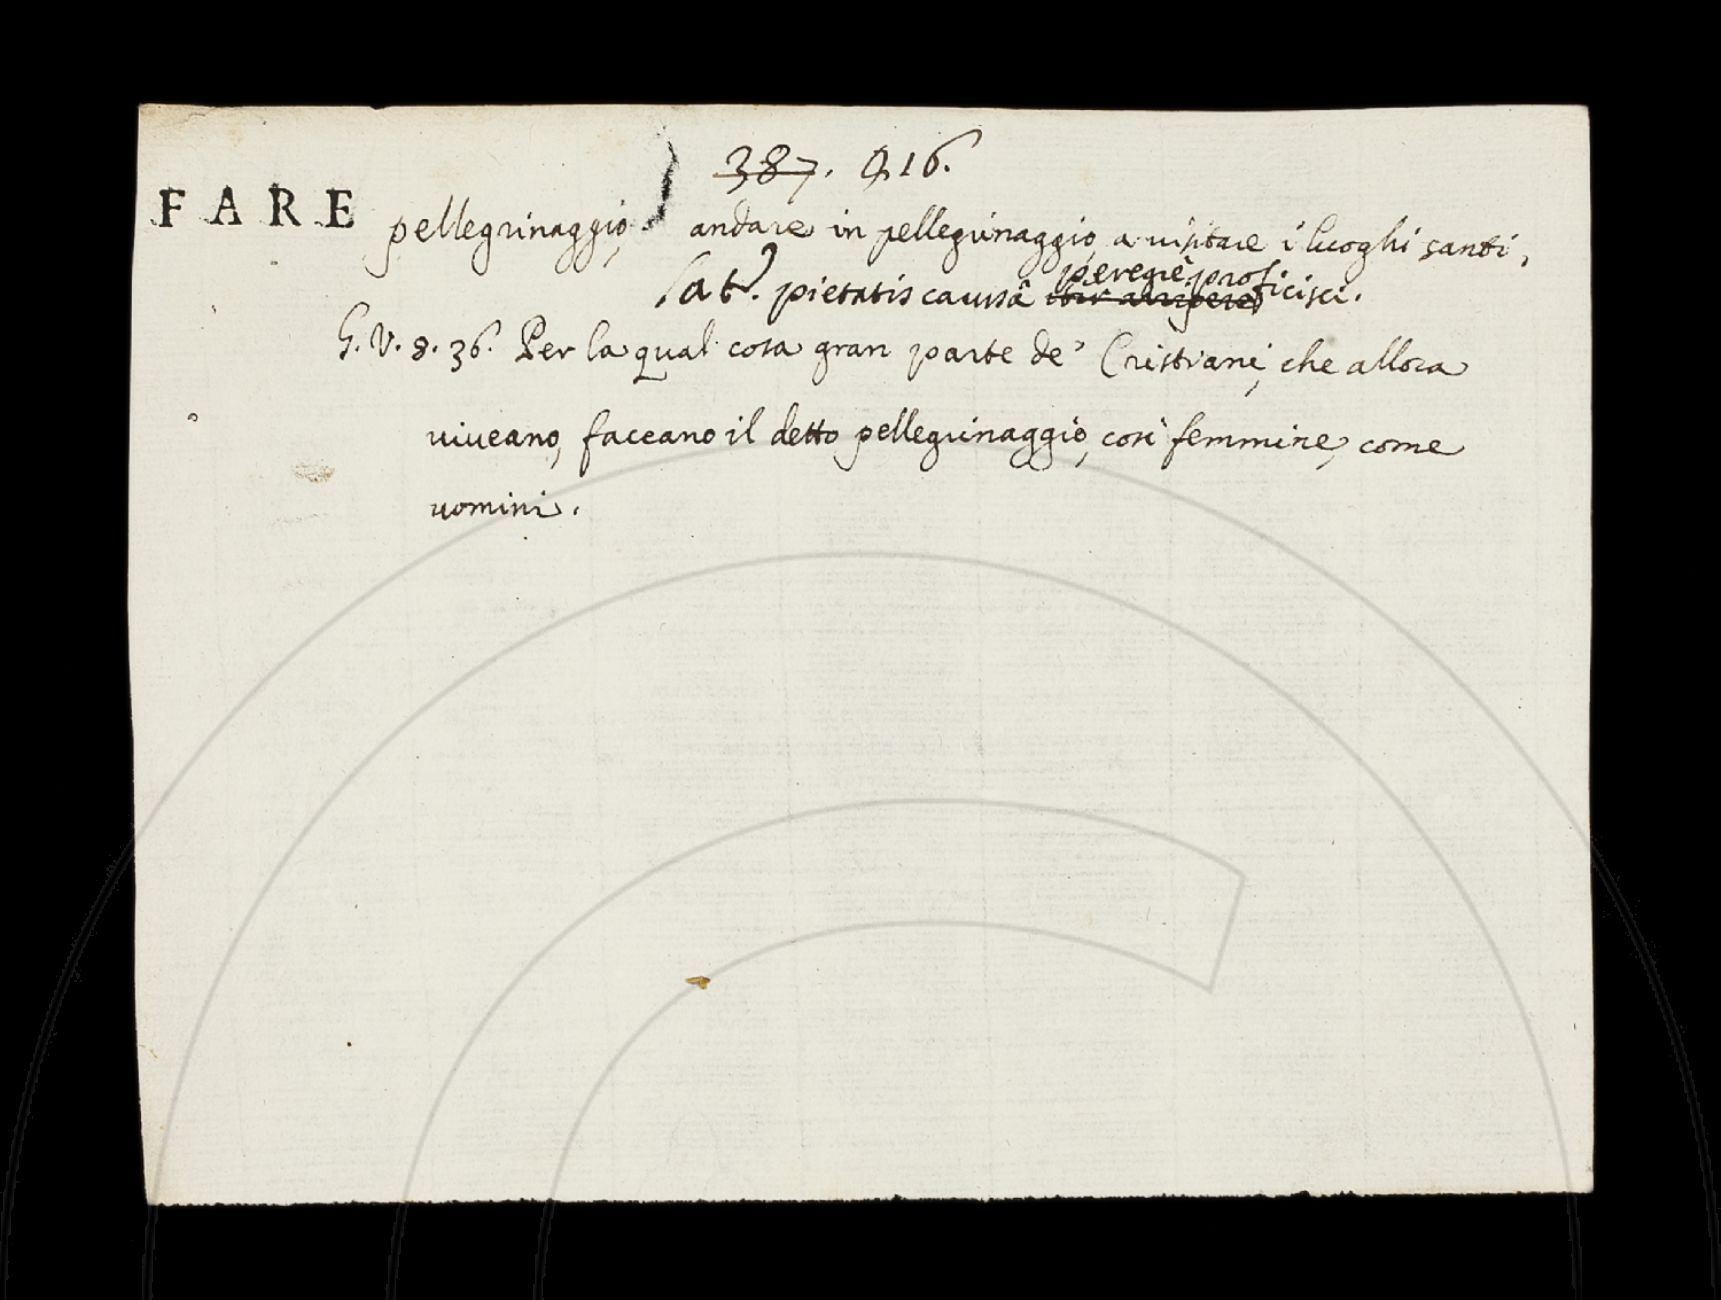 387. 916.
FARE pellegrinaggio, andare in pellegrinaggio, a visitare i luoghi santi,
peregrè proficisci.
Lat. pietatis caussâ iter arripere
G. V. 8. 36. Per la qual cosa gran parte de' Cristiani, che allora
viveano, faceano il detto pellegrinaggio, così femmine, come
uomini.